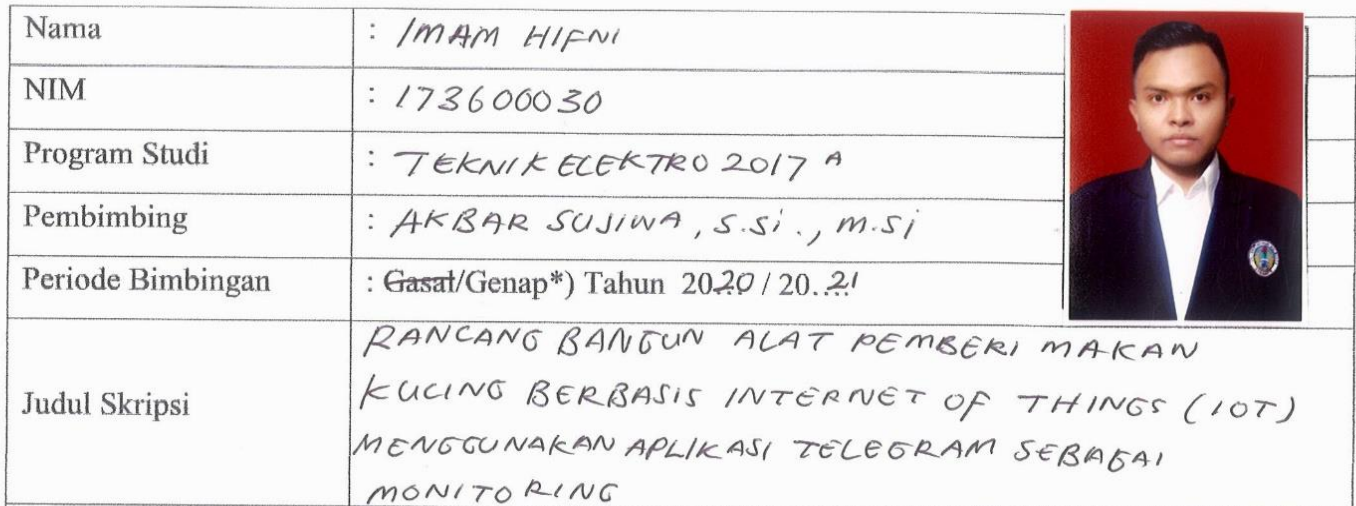 Nama : IMAM HIFNI
NIM : 173600030
Program Studi : TEKNIK ELEKTRO 2017 A
Pembimbing : AKBAR SUJIWA, S.Si., M.Si
Periode Bimbingan : Gasal/Genap*) Tahun 2020 / 20..21
RANCANG BANGUN ALAT PEMBERI MAKAN
Judul Skripsi KUCING BERBASIS INTERNET OF THINGS (IOT)
MENGGUNAKAN APLIKASI TELEGRAM SEBAGAI
MONITORING